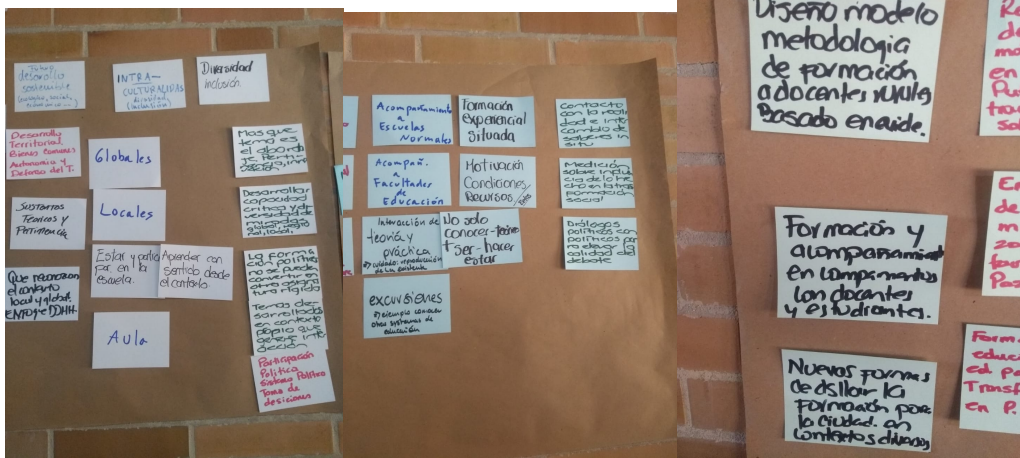 desarrollo
sostenible
INTRA-
CULTURALIDAD
(inclusión)
Diversidad
Inclusión.
Desarrollo
Territorial
Bienes Comunes
Autonomía y
Defensa del T.
Globales
Mas que
tema es
el abordaje
Sustentos
Teóricos y
Pertinencia
Locales
Desarrollar
capacidad
critica y di-
versidad de
miradas
global, regio
nal, local.
Que reconozcan
el contexto
local y global.
ENFOQUE DDHH.
Estar y partici
par en la
escuela.
Aprender con
sentido desde
el contexto.
La forma
ción política
no se puede
convertir en
otra asigna
tura rígida
Aula
Temas de-
sarrollados
en contexto
propio que
genere inter
acción
Participación
Política
Sistema Político
Toma de
desiciones
Acompañamiento
a
Escuelas
Normales
Formación
Experiencial
Situada
Contacto
con la reali
dad e inter
cambio de
saberes in
situ
Acompañ.
a
Facultades
de
Educación
Motivación
Condiciones
Recursos
Medición
sobre influen
cia de lo he
cho en la trans
formación
social
Interacción de
teoría y
práctica
No solo
conocer-teórico
+ ser-hacer
estar
Diálogos
políticos con
políticos par
a elevar la
calidad del
debate
excursiones
Ejemplo conocer
otros sistemas de
educación
Diseño modelo
metodologia
de formación
a docentes rurales
Basado en aide.
Formación y
acompañamiento
en campamentos
con docentes
y estudiantes.
Nuevas formas
de dsllar la
Formación para
la ciudad. en
contextos diversos